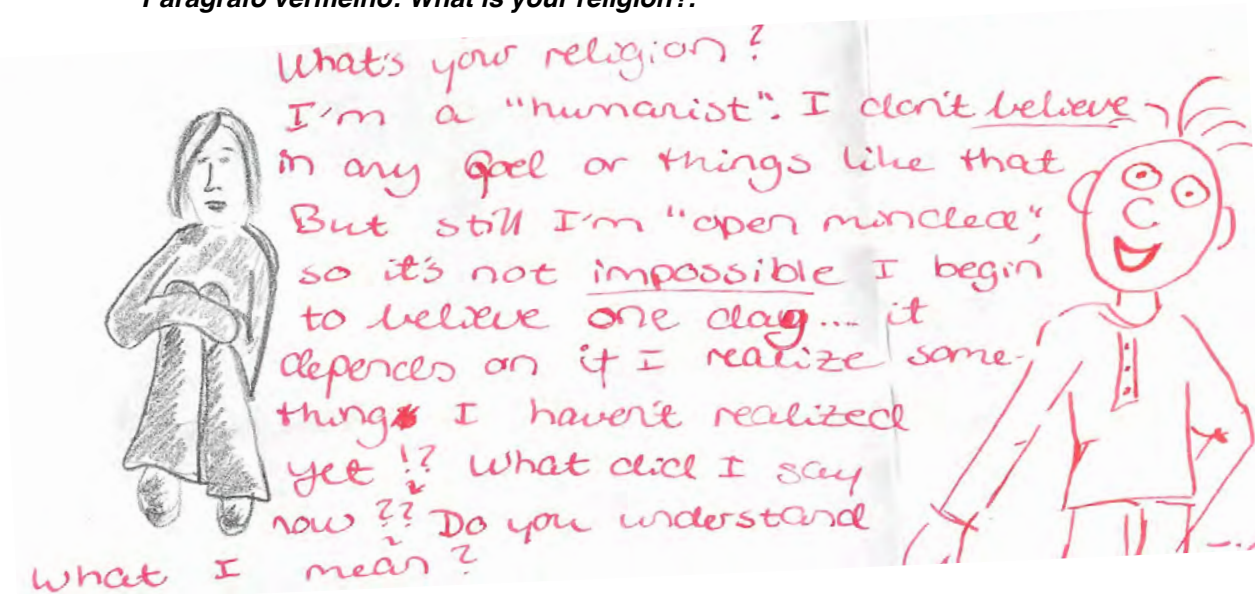 Parágrafo vermelho: What is your religion?:
What's your religion?
I'm a "humanist". I don't believe
in any God or things like that
But still I'm "open minded",
so it's not impossible I begin
to believe one day.... it
depends on if I realize some-
thing I haven't realized
yet !? What did I say
now ?? Do you understand
what I mean?